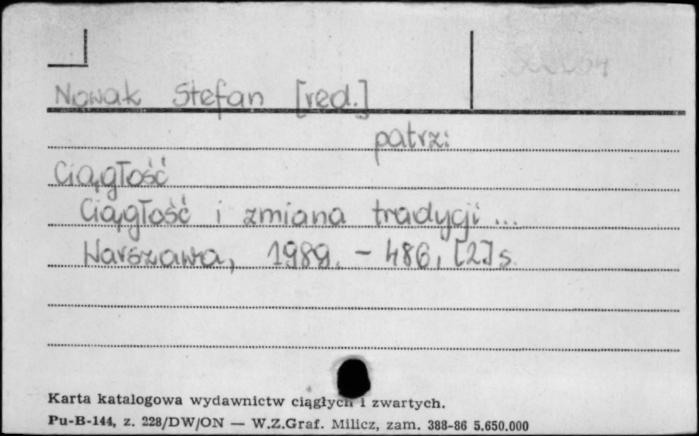 Nowak Stefan [red.]
patrz:
Ciągłość
Ciągłość i zmiana tradycji ...
Warszawa, 1989. - 486, [2] s.
Karta katalogowa wydawnictw ciągłych i zwartych.
Pu-B-144, z. 228/DW/ON — W.Z.Graf. Milicz, zam. 388-86 5.650.000